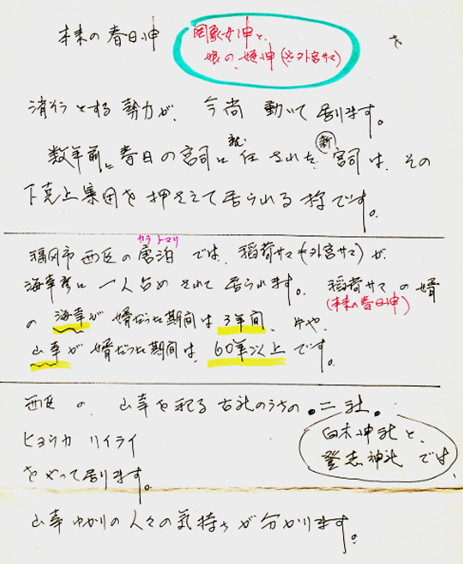 本来の春日神
罔象女神と、
娘の、姫神(や外宮サマ)
を
消そうとする勢力が、今尚 動いて居ります。
数年前に春日の宮司に就任された、新宮司は、その
下克上集団を押さえて居られる様です。
福岡市西区の唐泊では、稲荷サマ(や外宮サマ)が
カラトマリ
海幸彦に一人占めされて居られます。稲荷サマの婿
(本来の春日神)
の海幸が婿だった期間は3年間、
山幸が婿だった期間は、60年以上です。
西区の、山幸を祀る古社のうちの、二社、
白木神社と、
登志神社では、
ヒョウカリイライ
をやって居ります。
山幸ゆかりの人々の気持ちが分かります。